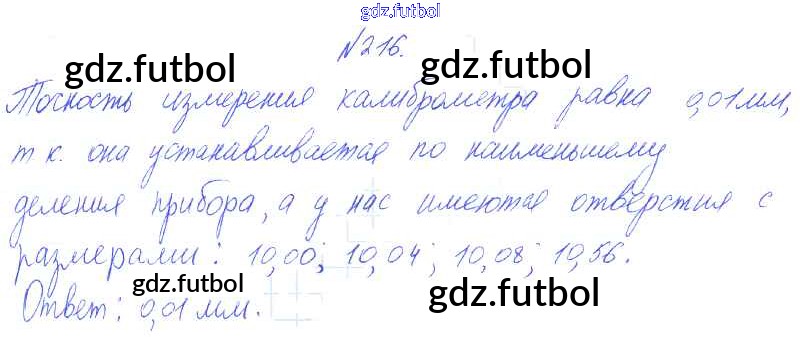 gdz.futbol
№216.
gdz.futbol gdz.futbol
Точность измерения калиброметра равна 0,01мм,
т к. она устанавливается по наименьшему
деления прибора, а у нас имеются отверстия с
размерами: 10,00; 10,04; 10,08; 10,56.
gdz.futbol gdz.futbol
Ответ: 0,01 мм.